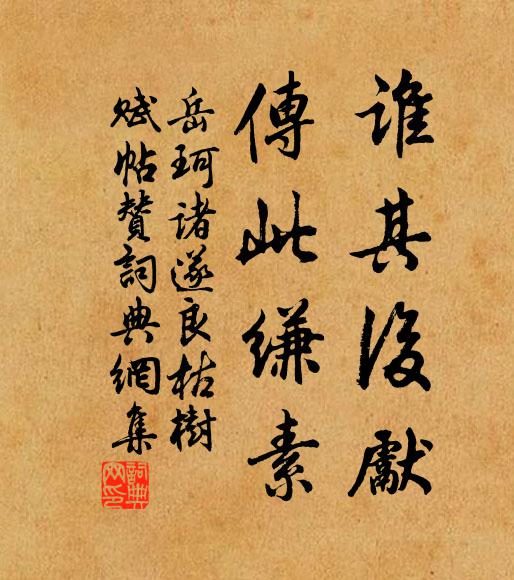 誰其後獻
傳此縑素
岳珂諸遂良枯樹
賦帖贊詞典網集
詞典網印